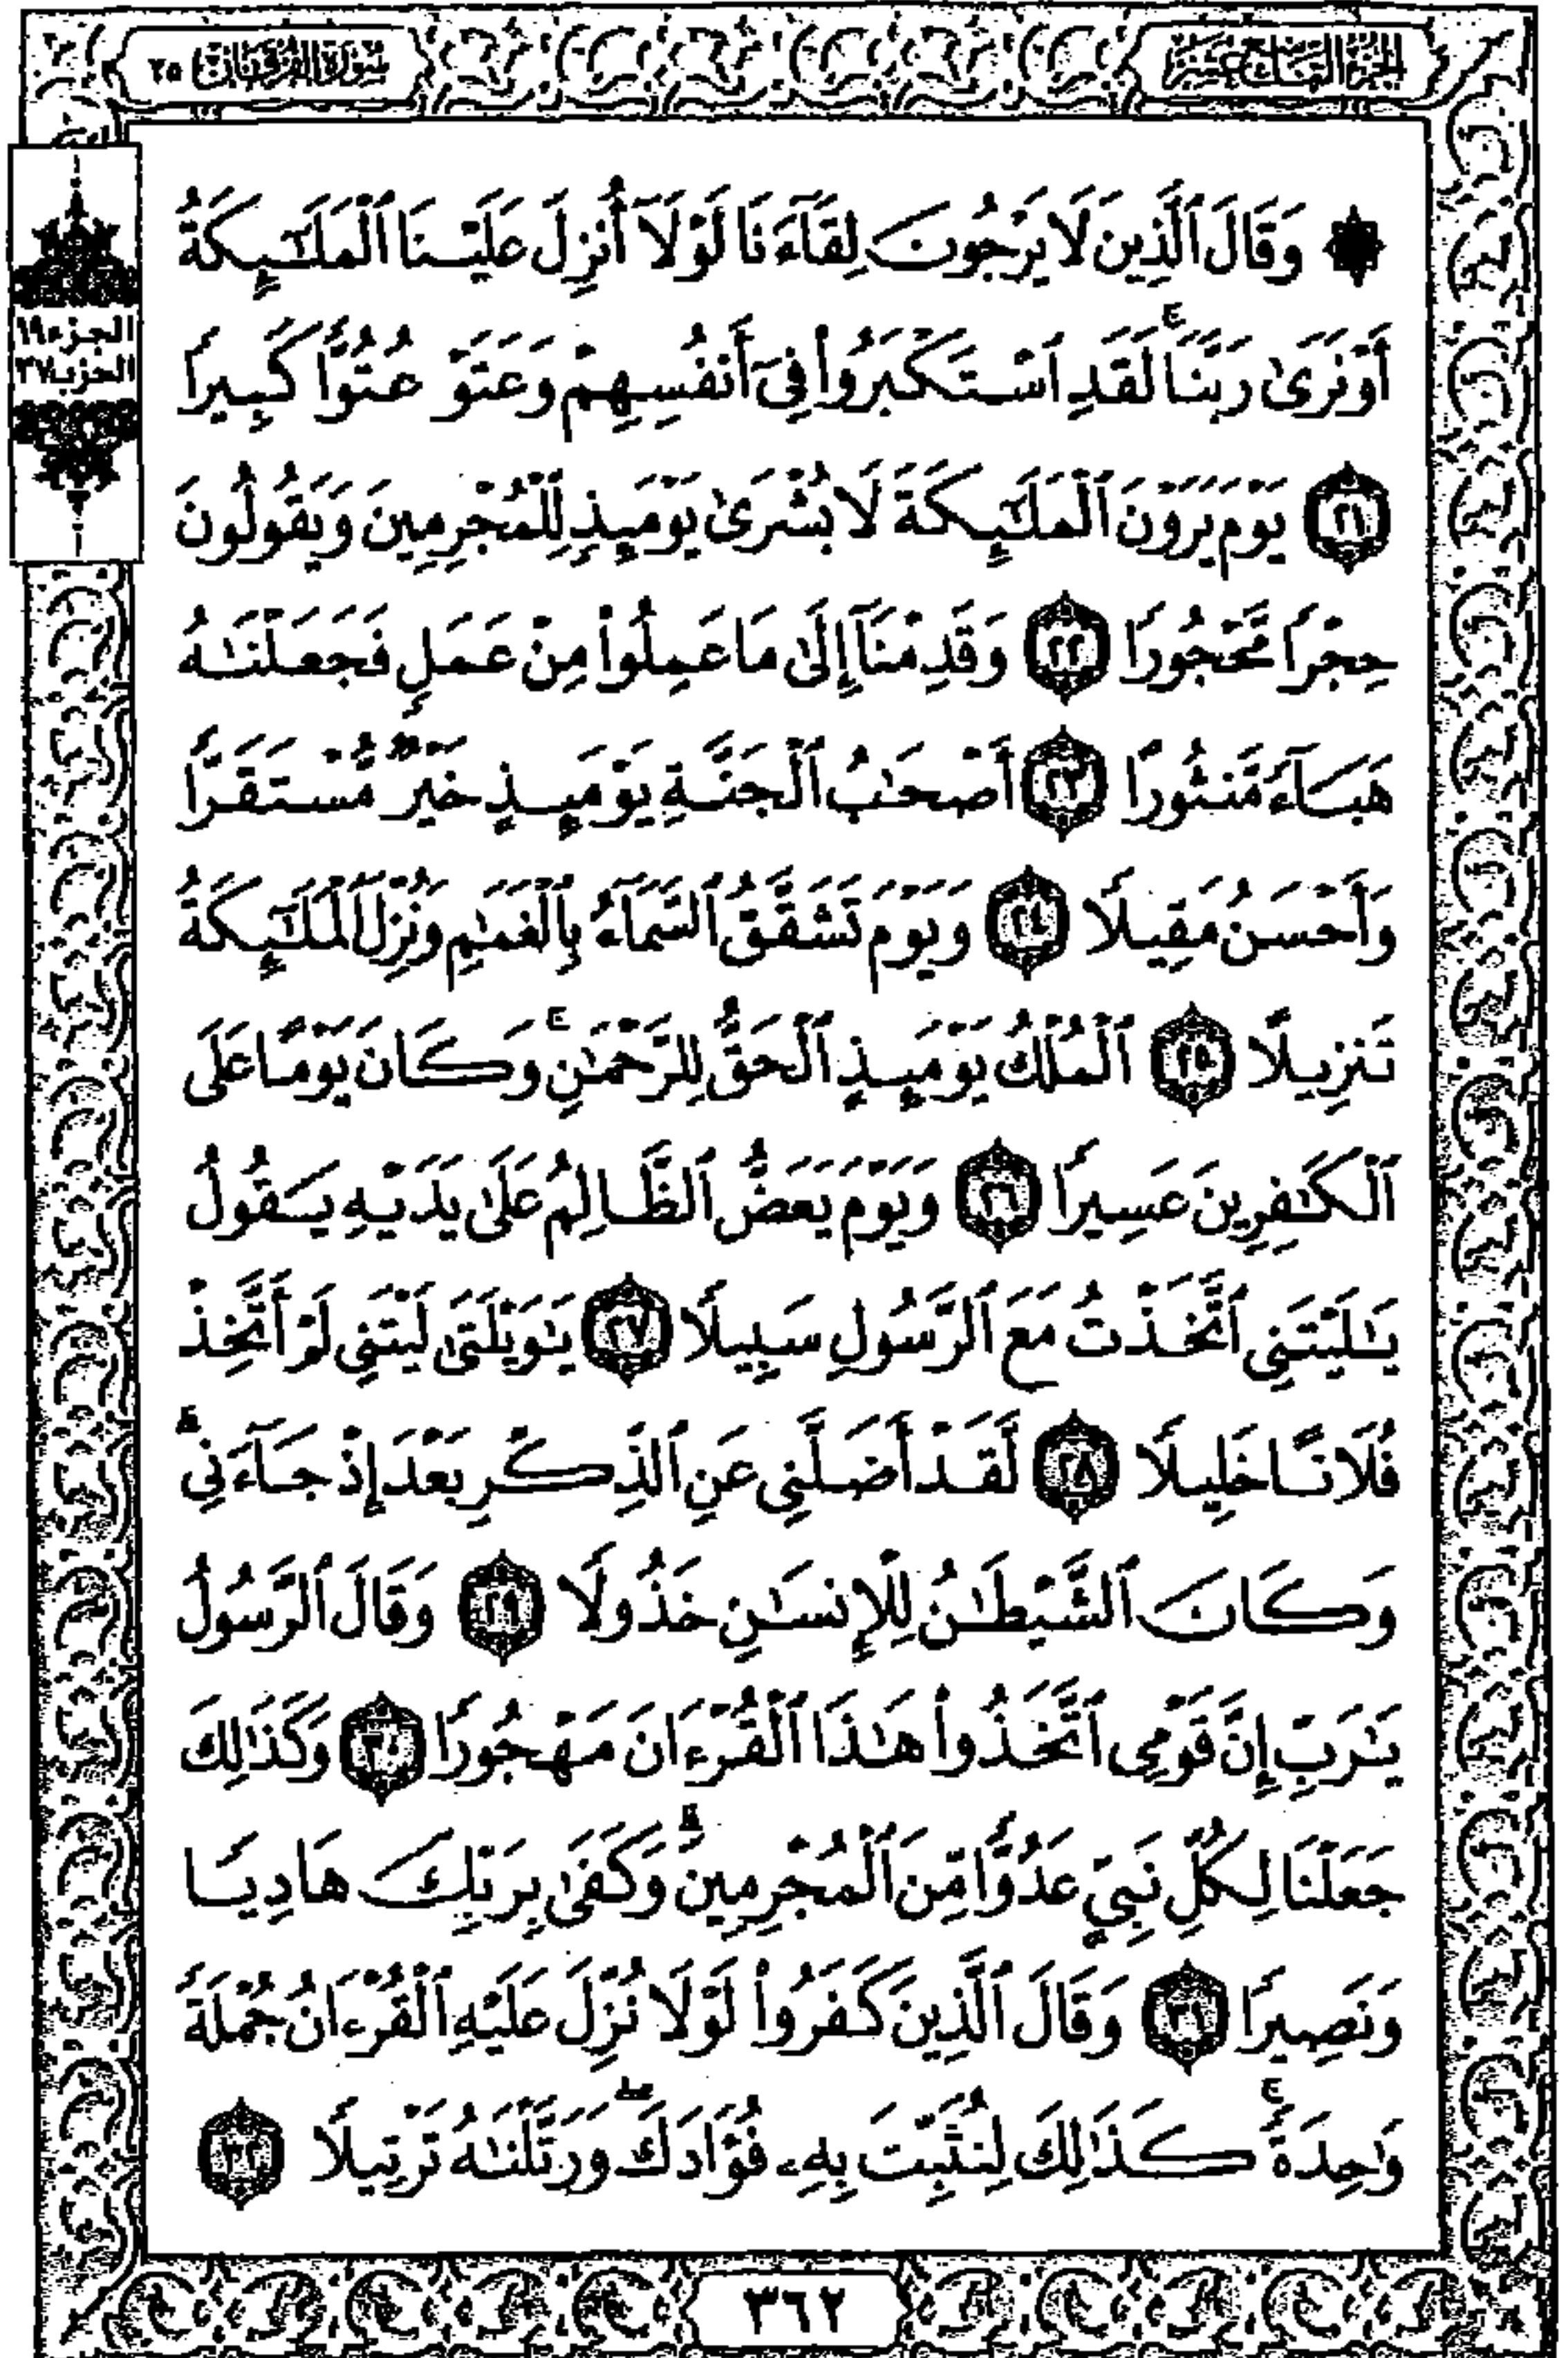 الجزء التاسع عشر
سورة الفرقان ٢٥
الجزء ١٩
الحزب ٣٧
۞ وَقَالَ ٱلَّذِينَ لَا يَرْجُونَ لِقَآءَنَا لَوْلَآ أُنزِلَ عَلَيْنَا ٱلْمَلَـٰٓئِكَةُ
أَوْ نَرَىٰ رَبَّنَا ۗ لَقَدِ ٱسْتَكْبَرُوا۟ فِىٓ أَنفُسِهِمْ وَعَتَوْ عُتُوًّا كَبِيرًا
٢١ يَوْمَ يَرَوْنَ ٱلْمَلَـٰٓئِكَةَ لَا بُشْرَىٰ يَوْمَئِذٍ لِّلْمُجْرِمِينَ وَيَقُولُونَ
حِجْرًا مَّحْجُورًا ٢٢ وَقَدِمْنَآ إِلَىٰ مَا عَمِلُوا۟ مِنْ عَمَلٍ فَجَعَلْنَـٰهُ
هَبَآءً مَّنثُورًا ٢٣ أَصْحَـٰبُ ٱلْجَنَّةِ يَوْمَئِذٍ خَيْرٌ مُّسْتَقَرًّا
وَأَحْسَنُ مَقِيلًا ٢٤ وَيَوْمَ تَشَقَّقُ ٱلسَّمَآءُ بِٱلْغَمَـٰمِ وَنُزِّلَ ٱلْمَلَـٰٓئِكَةُ
تَنزِيلًا ٢٥ ٱلْمُلْكُ يَوْمَئِذٍ ٱلْحَقُّ لِلرَّحْمَـٰنِ ۚ وَكَانَ يَوْمًا عَلَى
ٱلْكَـٰفِرِينَ عَسِيرًا ٢٦ وَيَوْمَ يَعَضُّ ٱلظَّالِمُ عَلَىٰ يَدَيْهِ يَقُولُ
يَـٰلَيْتَنِى ٱتَّخَذْتُ مَعَ ٱلرَّسُولِ سَبِيلًا ٢٧ يَـٰوَيْلَتَىٰ لَيْتَنِى لَمْ أَتَّخِذْ
فُلَانًا خَلِيلًا ٢٨ لَّقَدْ أَضَلَّنِى عَنِ ٱلذِّكْرِ بَعْدَ إِذْ جَآءَنِى ۗ
وَكَانَ ٱلشَّيْطَـٰنُ لِلْإِنسَـٰنِ خَذُولًا ٢٩ وَقَالَ ٱلرَّسُولُ
يَـٰرَبِّ إِنَّ قَوْمِى ٱتَّخَذُوا۟ هَـٰذَا ٱلْقُرْءَانَ مَهْجُورًا ٣٠ وَكَذَٰلِكَ
جَعَلْنَا لِكُلِّ نَبِىٍّ عَدُوًّا مِّنَ ٱلْمُجْرِمِينَ ۗ وَكَفَىٰ بِرَبِّكَ هَادِيًا
وَنَصِيرًا ٣١ وَقَالَ ٱلَّذِينَ كَفَرُوا۟ لَوْلَا نُزِّلَ عَلَيْهِ ٱلْقُرْءَانُ جُمْلَةً
وَٰحِدَةً ۚ كَذَٰلِكَ لِنُثَبِّتَ بِهِۦ فُؤَادَكَ ۖ وَرَتَّلْنَـٰهُ تَرْتِيلًا ٣٢
٣٦٢